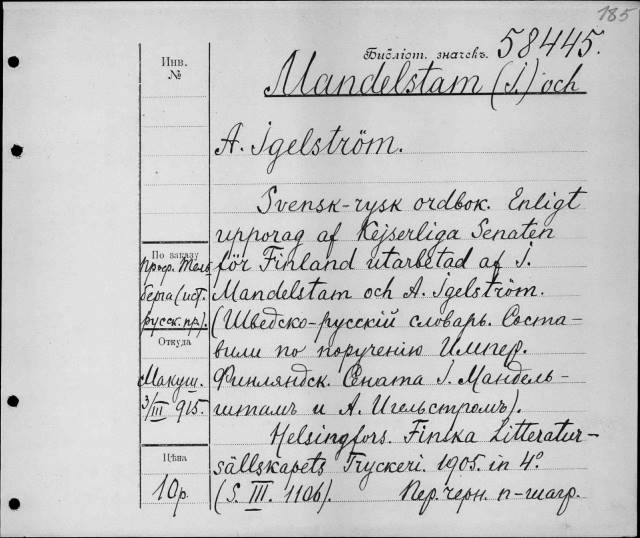 185
Библіот. значекъ. 58445.
Инв.
№
Mandelstam (J.) och
A. Igelström.
Svensk-rysk ordbok. Enligt
upporag af Kejserliga Senaten
för Finland utarbetad af J.
Mandelstam och A. Igelström.
(Шведско-русскій словарь. Соста-
вили по порученію Импер.
Финляндск. Сената I. Мандель-
штамъ и А. Игельстромъ).
Helsingfors. Finska Litteratur-
sällskapets Tryckeri. 1905. in 4º
(S. III. 1106). Пер. черн. п-шагр.
По заказу
проф. Тель
берга (ист.
русск. пр).
Откуда
Макуш.
3/III 915.
Цѣна
10 р.